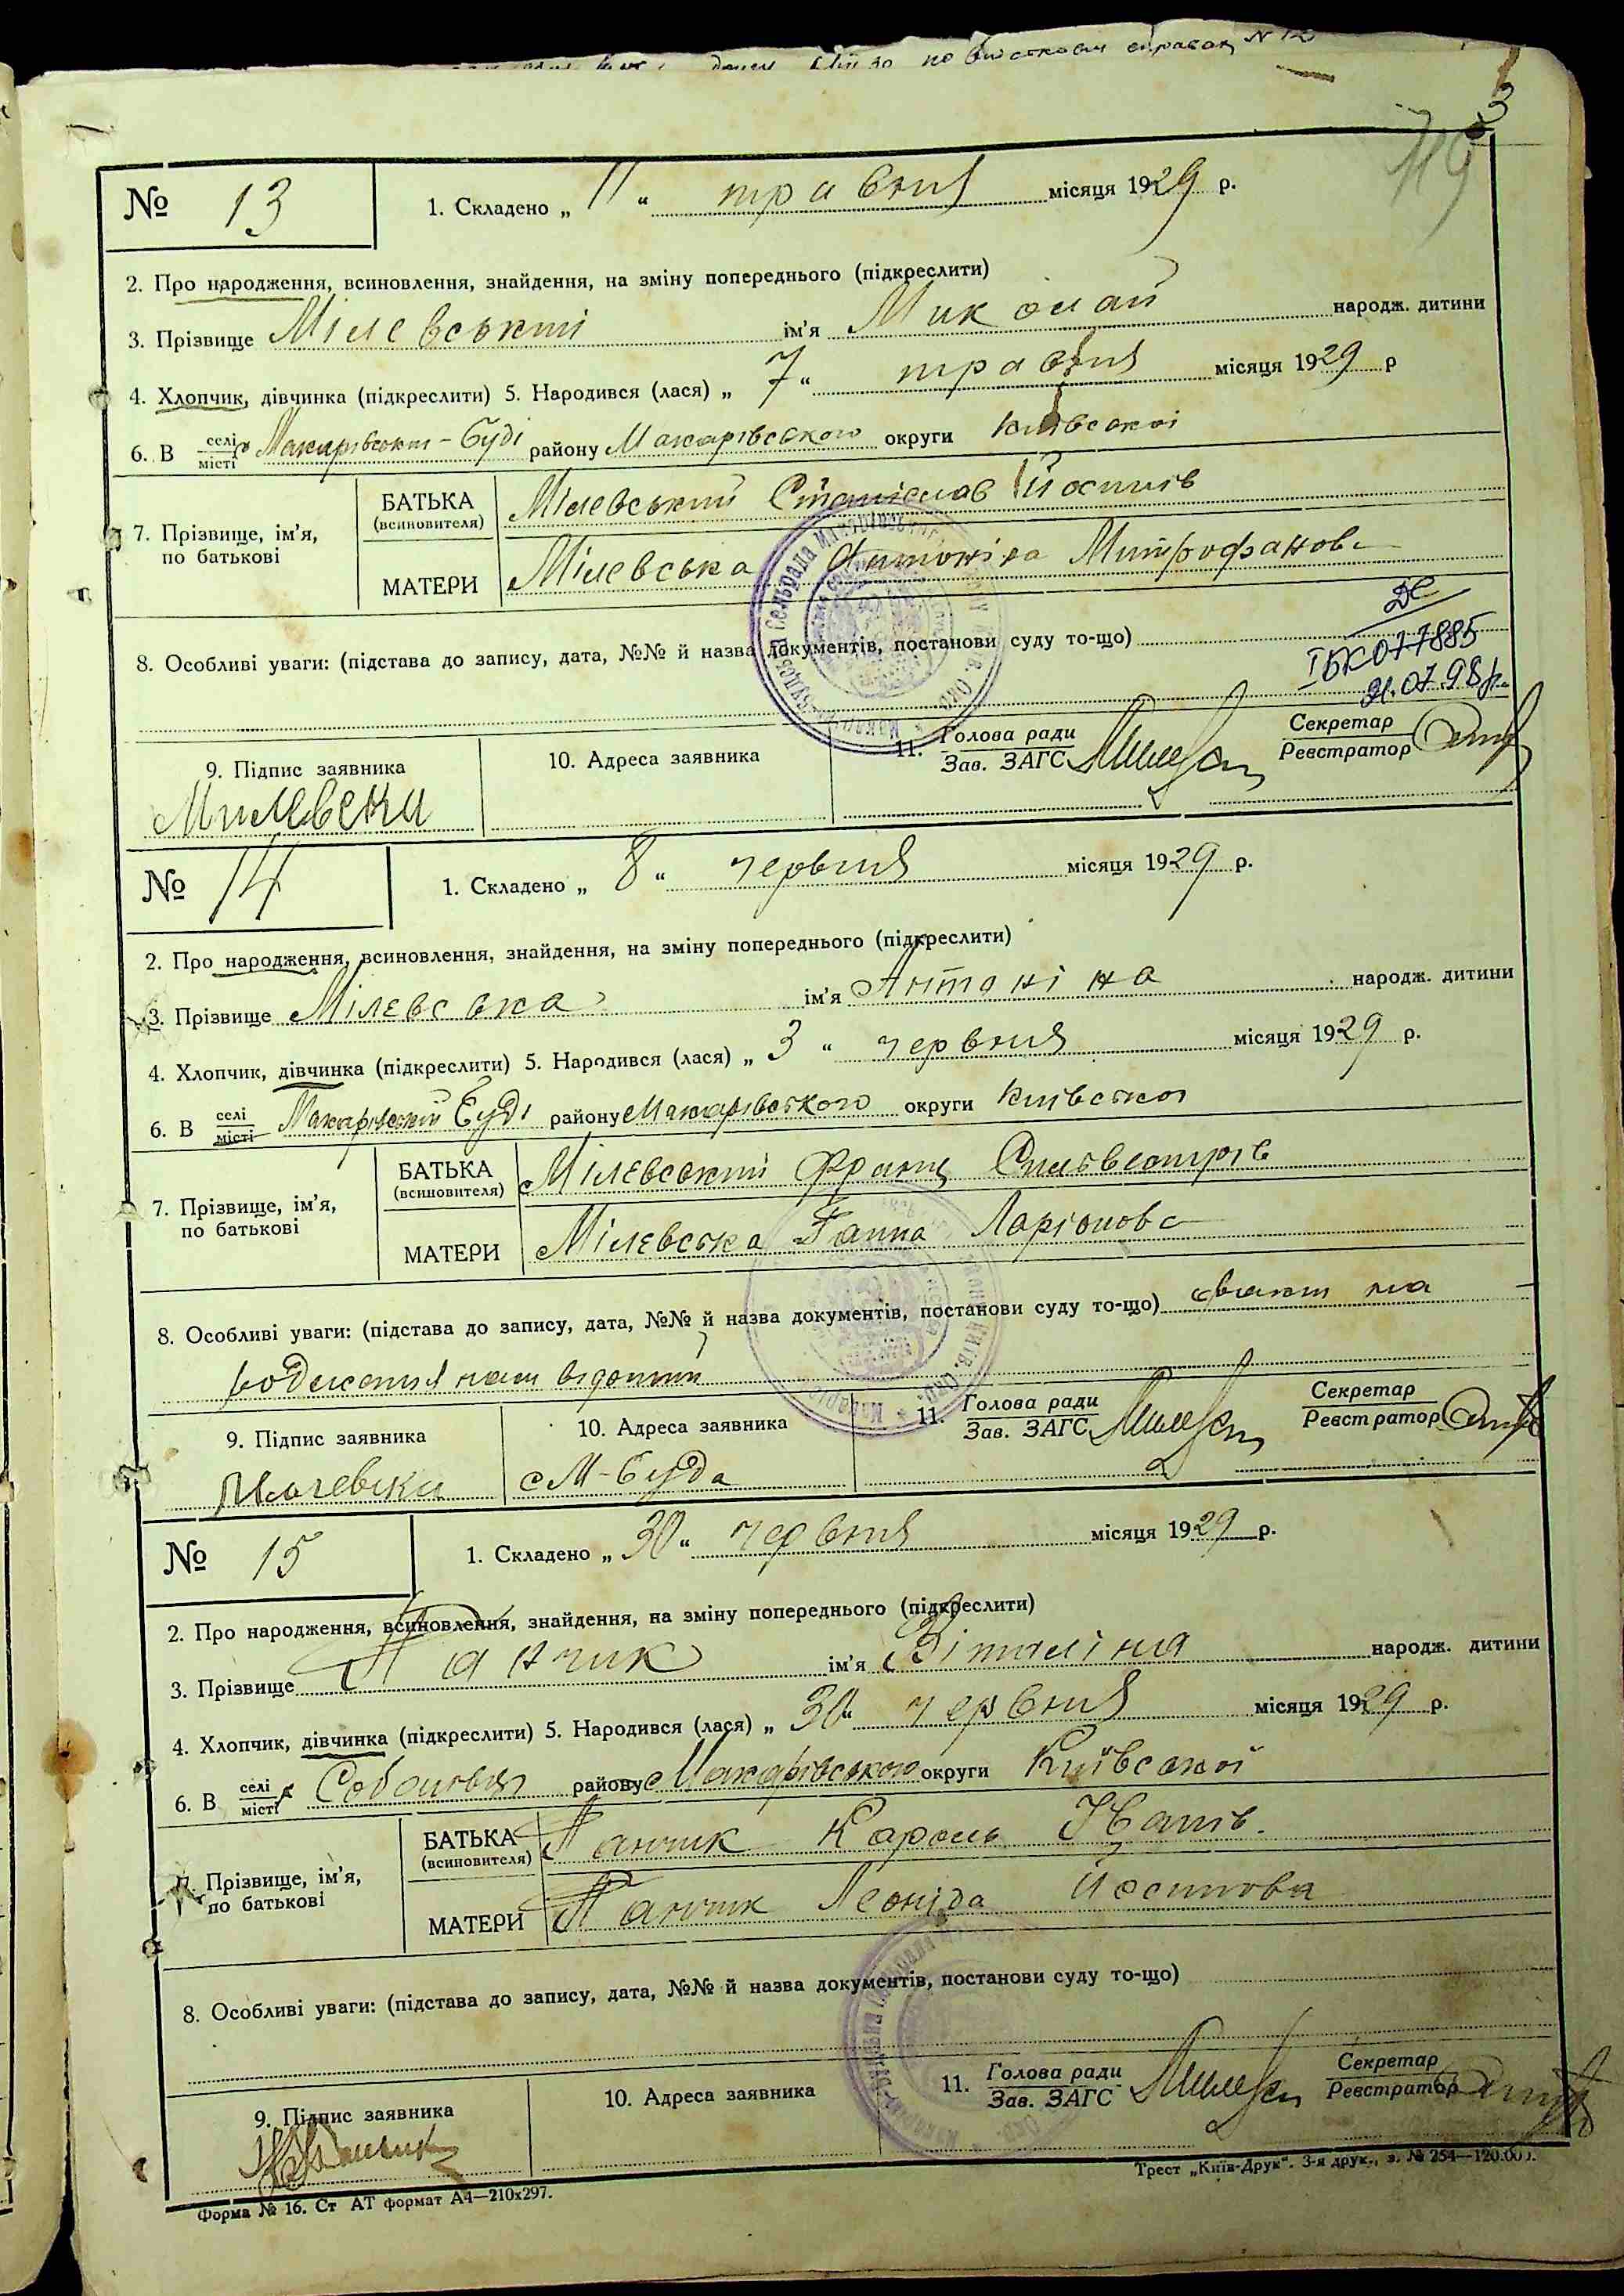 по військовим справам № 12
3
119
№ 13
1. Складено „ 11 “ травня місяця 1929 р.
2. Про народження, всиновлення, знайдення, на зміну попереднього (підкреслити)
3. Прізвище Мілевський ім'я Миколай народж. дитини
4. Хлопчик, дівчинка (підкреслити) 5. Народився (лася) „ 7 “ травня місяця 1929 р
6. В селі місті Макарівській-Буді району Макарівського округи Київської
7. Прізвище, ім'я, по батькові
БАТЬКА (всиновителя) Мілевський Станіслав Йосипів
МАТЕРИ Мілевська Антоніна Митрофанова
8. Особливі уваги: (підстава до запису, дата, №№ й назва документів, постанови суду то-що)
ІБК 077885
21.07.98р.
9. Підпис заявника
Милевски
10. Адреса заявника
11. Голова ради Зав. ЗАГС
Секретар Реєстратор
№ 14
1. Складено „ 8 “ червня місяця 1929 р.
2. Про народження, всиновлення, знайдення, на зміну попереднього (підкреслити)
3. Прізвище Мілевська ім'я Антоніна народж. дитини
4. Хлопчик, дівчинка (підкреслити) 5. Народився (лася) „ 3 “ червня місяця 1929 р.
6. В селі місті Макарівській Буді району Макарівського округи Київської
7. Прізвище, ім'я, по батькові
БАТЬКА (всиновителя) Мілевський Франц Сильвестрів
МАТЕРИ Мілевська Ганна Ларіонова
8. Особливі уваги: (підстава до запису, дата, №№ й назва документів, постанови суду то-що)
нам відомий
9. Підпис заявника
Милевски
10. Адреса заявника
с М-Буда
11. Голова ради Зав. ЗАГС
Секретар Реєстратор
№ 15
1. Складено „ 30 “ червня місяця 1929 р.
2. Про народження, всиновлення, знайдення, на зміну попереднього (підкреслити)
3. Прізвище Панчик ім'я Віталіна народж. дитини
4. Хлопчик, дівчинка (підкреслити) 5. Народився (лася) „ 30 “ червня місяця 1929 р.
6. В селі місті району Макарівського округи Київської
7. Прізвище, ім'я, по батькові
БАТЬКА (всиновителя) Панчик Кароль Іванів.
МАТЕРИ Панчик Леоніда Йосипова
8. Особливі уваги: (підстава до запису, дата, №№ й назва документів, постанови суду то-що)
9. Підпис заявника
10. Адреса заявника
11. Голова ради Зав. ЗАГС
Секретар Реєстратор
Форма № 16. Ст АТ формат А4—210х297.
Трест „Київ-Друк“. 3-я друк., з. № 254—120.000.